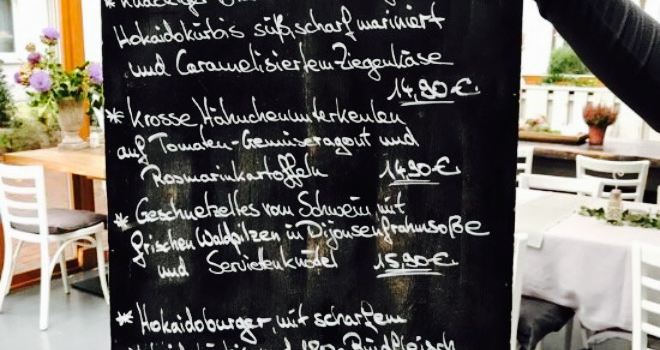 Hokaidokürbis süß, scharf mariniert
und Caramelisiertem Ziegenkäse
14,90 €
* Krosse Hähnchenunterkeulen
auf Tomaten-Gemüseragout und
Rosmarinkartoffeln 14,90 €
* Geschnetzelles vom Schwein mit
frischen Waldpilzen in Dijonsenfrahmsoße
und Servietenknödel 15,90 €
* Hokaidoburger, mit scharfem